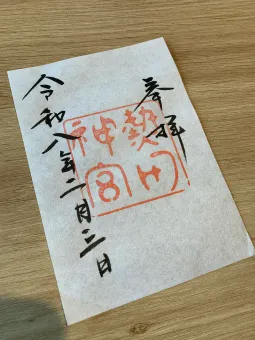 奉拝
熱田
神宮
令和八年二月三日